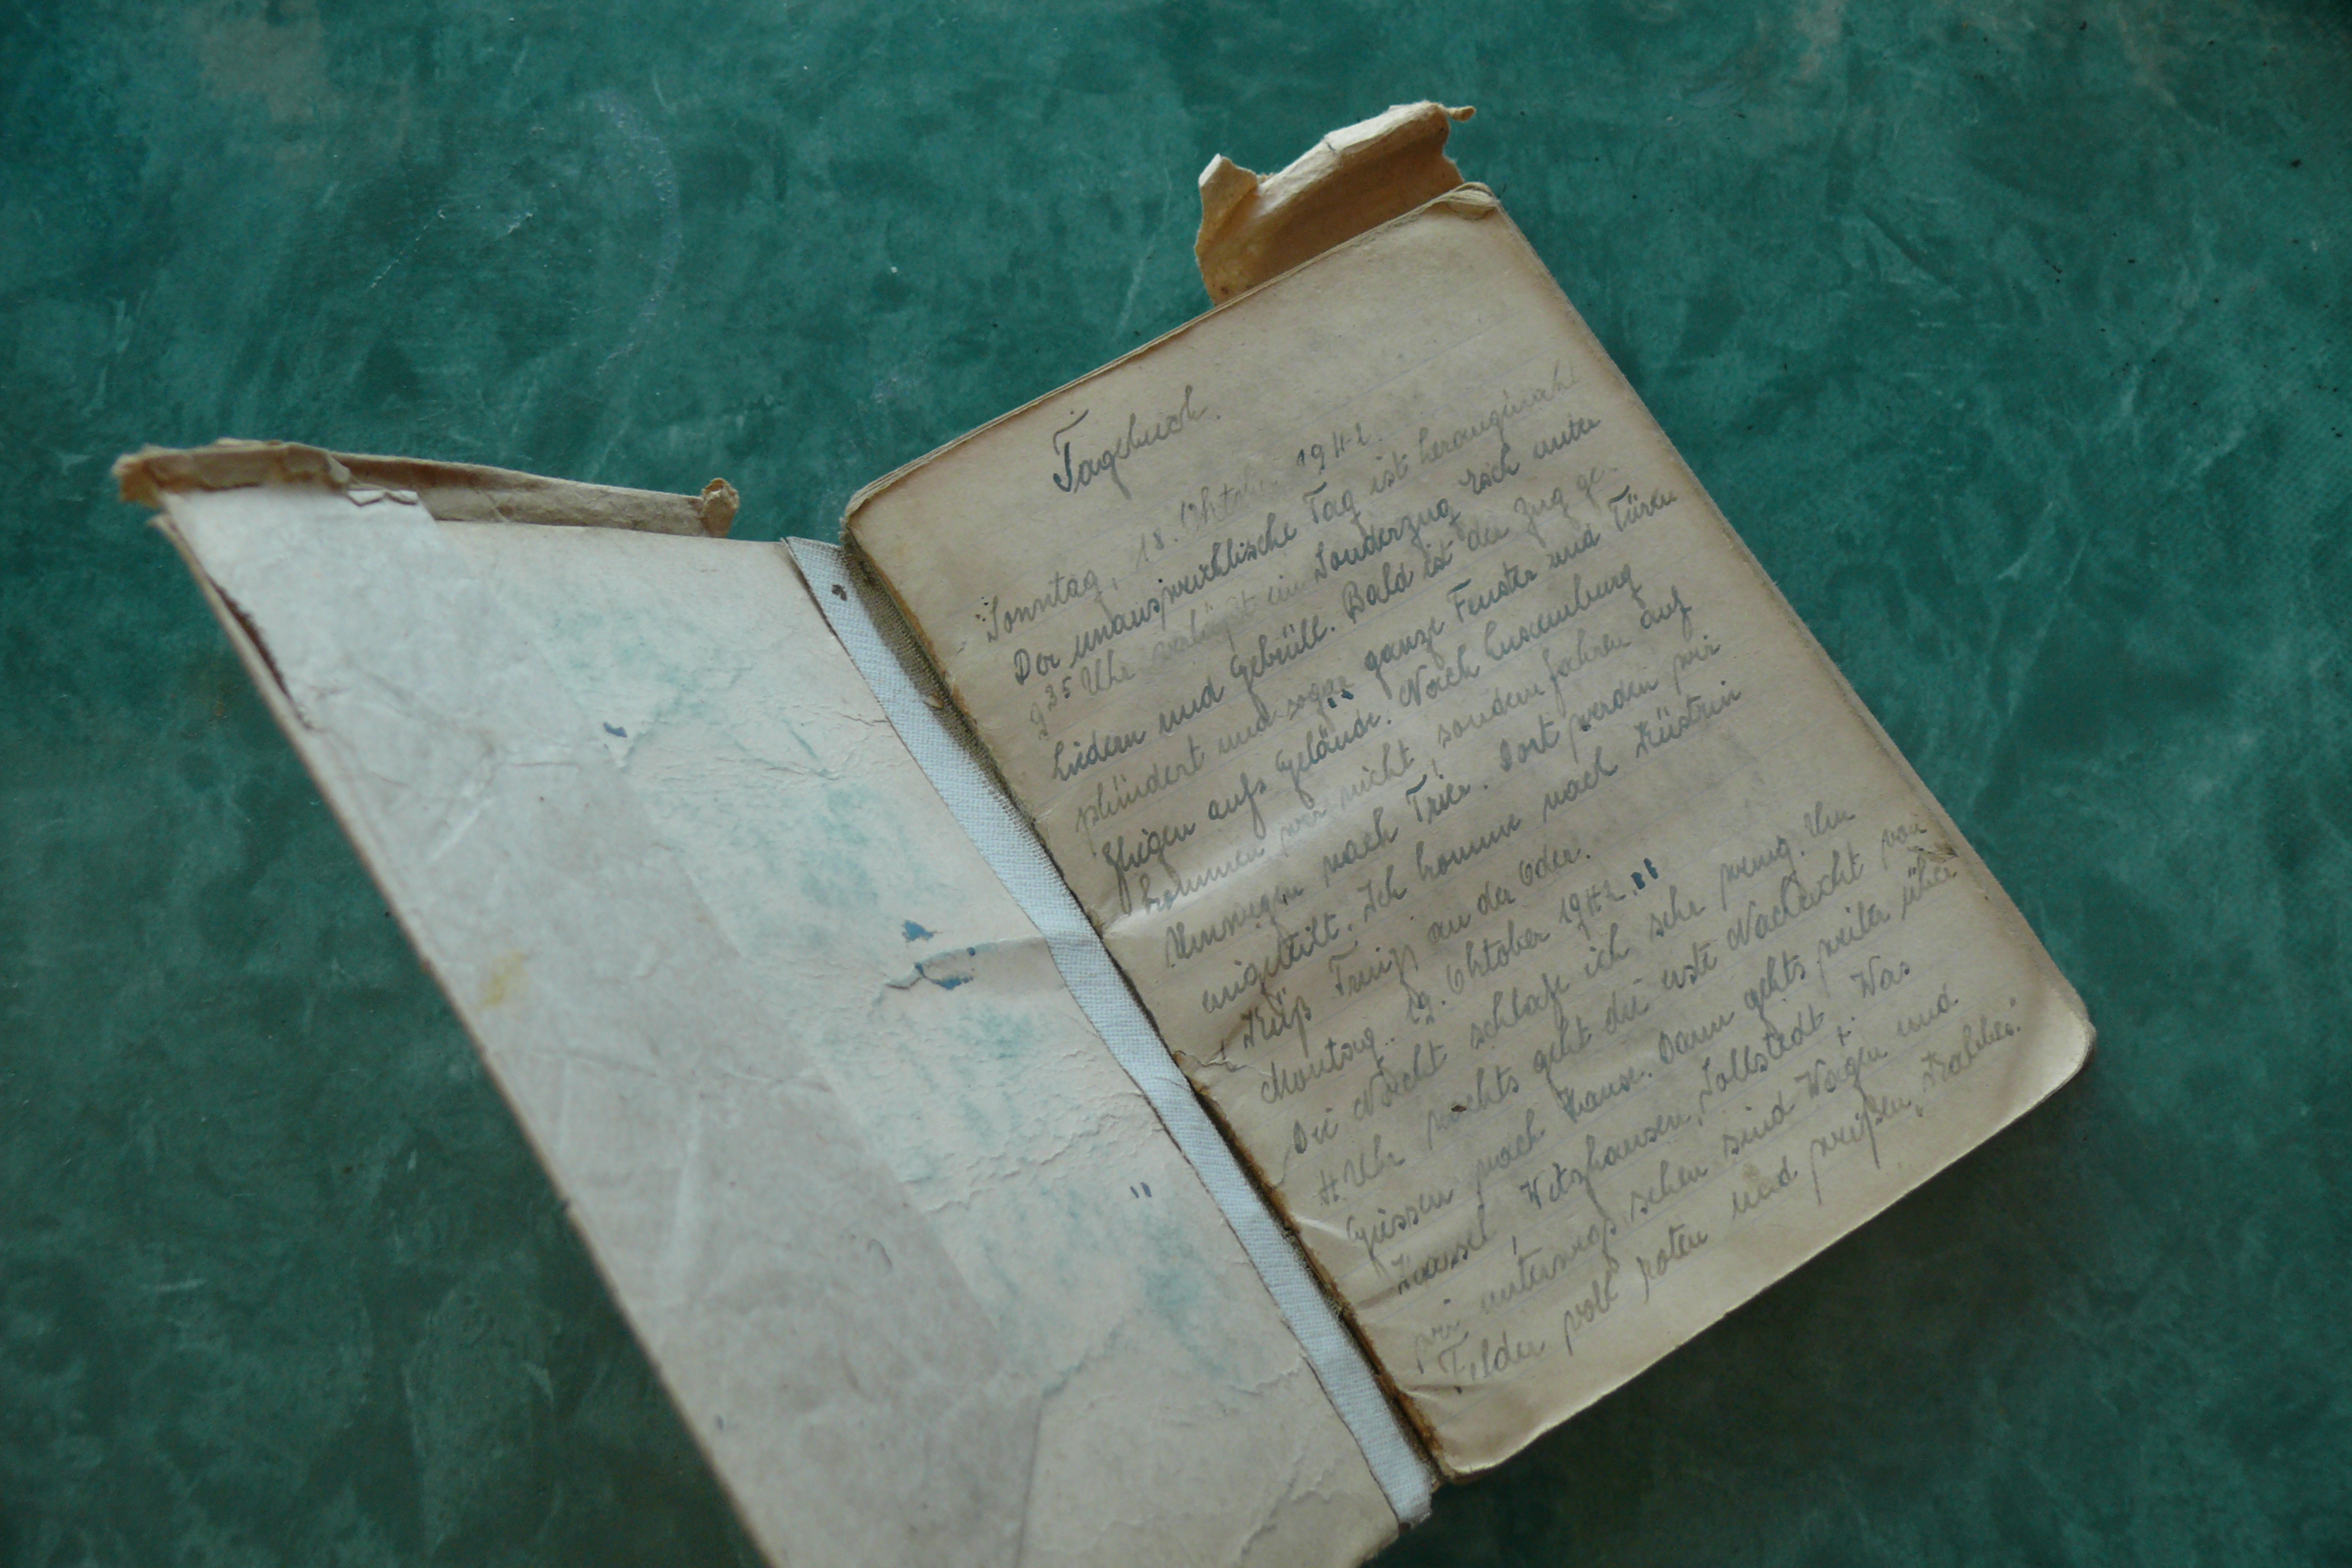 Tagebuch.
Sonntag, 18. Oktober 1942.
Der unaussprechlische Tag ist herangerückt
9 35 Uhr verlässt ein Sonderzug sich unter
Liedern und Gebrüll. Bald ist der Zug ge-
plündert und sogar ganze Fenster und Türen
fliegen aufs Gelände. Nach Luxemburg
kommen wir nicht, sondern fahren auf
Umwegen nach Trier. Dort werden wir
eingeteilt. Ich komme nach Küstrin
Küß an der Oder.
Montag. 19. Oktober 1942.
Die Nacht schlafe ich sehr wenig. Um
4 Uhr nachts geht die erste Nachricht von
Giessen nach Hause. Dann gehts weiter über
Kassel, Witzhausen, Sollstedt. Was
wir unterwegs sehen sind Wagen und
Felder voll roten und weißen „Kabbes."